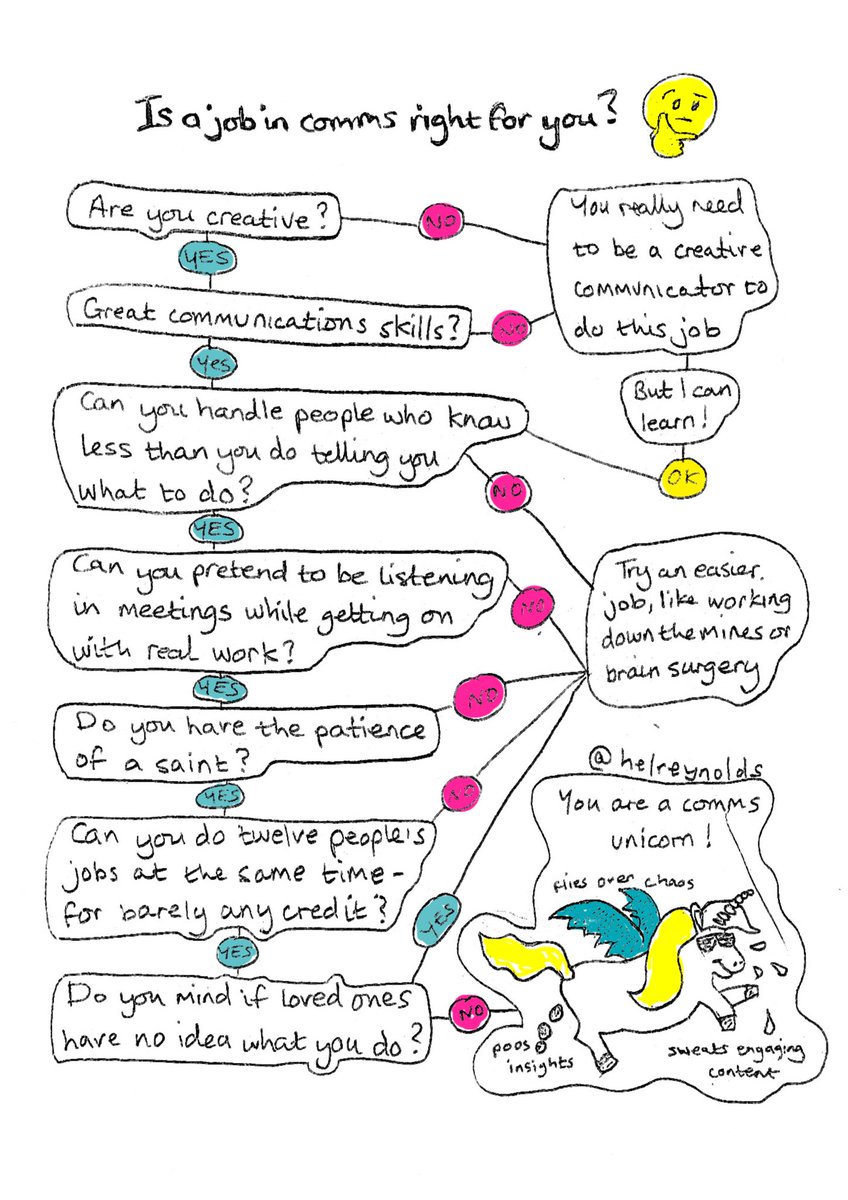 Is a job in comms right for you?
Are you creative?
NO
YES
You really need
to be a creative
communicator to
do this job
Great communications skills?
NO
Yes
But I can
learn!
OK
Can you handle people who know
less than you do telling you
what to do?
NO
YES
Can you pretend to be listening
in meetings while getting on
with real work?
NO
YES
Try an easier
job, like working
down the mines or
brain surgery
Do you have the patience
of a saint?
NO
YES
Can you do twelve people's
jobs at the same time -
for barely any credit?
NO
YES
Do you mind if loved ones
have no idea what you do?
YES
NO
@helreynolds
You are a comms
unicorn!
flies over chaos
poos
insights
sweats engaging
content